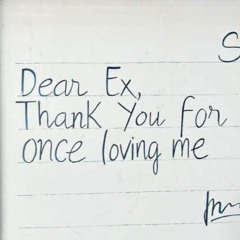 S
Dear Ex,
Thank You For
once loving me